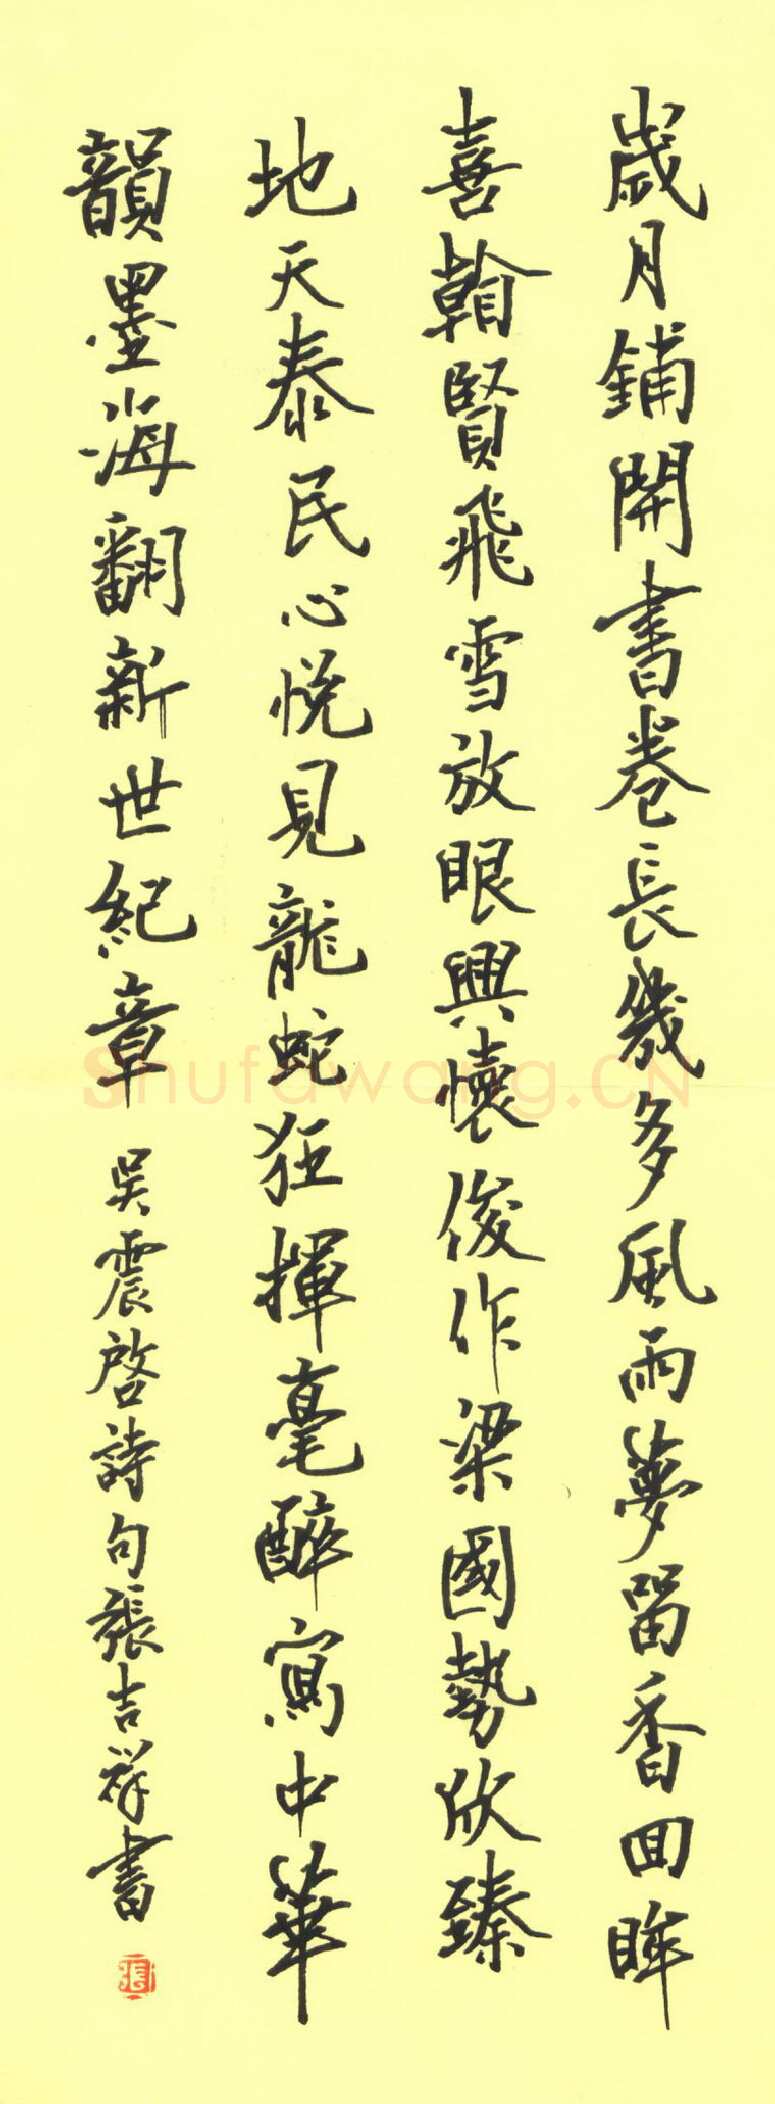 歲月鋪開書卷長幾多風雨夢留香回眸
喜翰賢飛雪放眼興懷俊作梁國勢欣臻
地天泰民心悅見龍蛇狂揮毫醉寫中華
韻墨海翻新世紀章
吳震啓詩句張吉祥書
Shufawang.CN